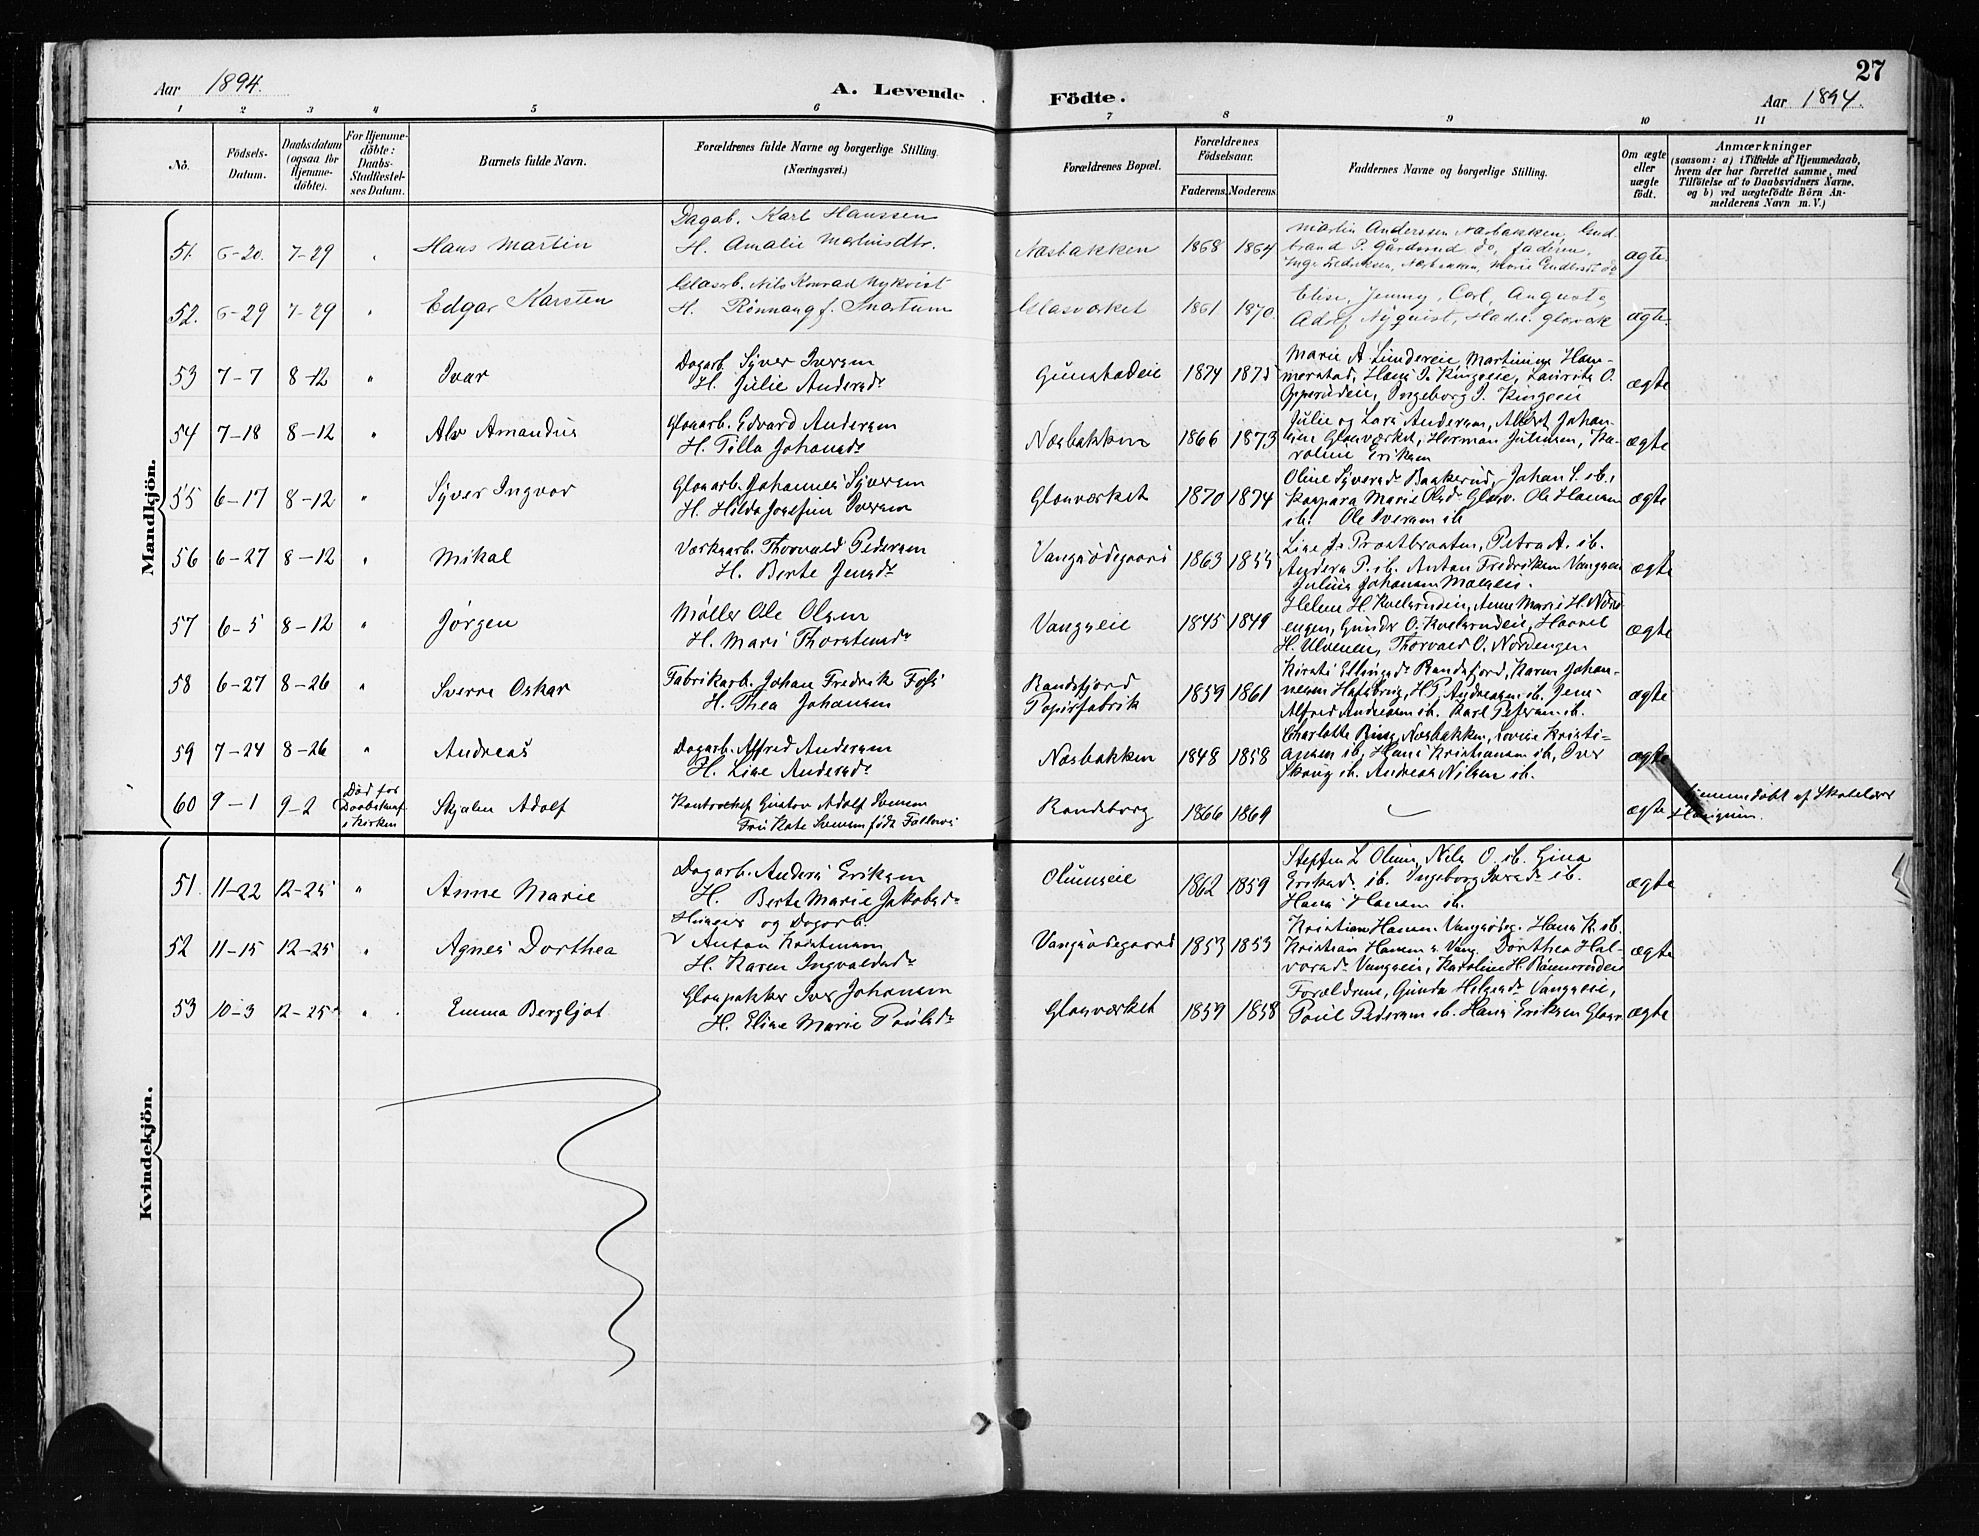 27
Aar 1894.
A. Levende Födte.
Aar 1894.
1 2 3 4 5 6 7 8 9 10 11
No.
Födsels-Datum.
Daabsdatum (ogsaa for Hjemme-döbte).
For Hjemme-döbte: Daabs-Stadfæstel-ses Datum.
Barnets fulde Navn.
Forældrenes fulde Navne og borgerlige Stilling.
(Næringsvei.)
Forældrenes Bopæl.
Forældrenes Födselsaar.
Faderens. Moderens.
Faddernes Navne og borgerlige Stilling.
Om ægte eller uægte födt.
Anmærkninger
(saasom: a) i Tilfælde af Hjemmedaab,
hvem der har forrettet samme, med
Tilföielse af to Daabsvidners Navne,
og b) ved uægtefödte Börn An-
melderens Navn m. V.)
Mandkjön.
51. 6-20. 7-29 " Hans Martin
Dagab. Karl Hanssen
H. Amalie Martinsdtr.
Næsbakken 1868 1864
Martin Anderssen Næsbakken, Gud
brand P. Gårdsrud do, faderen,
ægte.
52. 6-29 7-29 " Edgar Karsten
Glasarb. Nils Konrad Nykvist
H. Rönnaug f. Snartum
Glasværket 1861 1870.
Elise, Jenny, Carl, August o
Adolf Nyquist, Hadel. glasværk
ægte.
53 7-7 8-12 " Ivar
Dagarb. Syver Iversen
H. Julie Andersdr
Gunstadeie 1874 1875
Marie A Lundereie, Martinine Ham-
merstad, Hans J. Kingeeie, Laurits O.
Opperudeie, Ingeborg J. Kingeeie
ægte
54 7-18 8-12 " Alv Amandus
Glasarb. Edvard Andersen
H. Tilla Johansdr
Næsbakken 1866 1873
Julie og Lars Andersen, Albert Johan-
sen Glasværket, Herman Juliusen, Ka-
roline Eriksen
ægte
55 6-17 8-12 " Syver Ingvar
Glasarb. Johannes Syversen
H. Hilda Josefine Iversen
Glasværket 1870 1874
Oline Syversdr Baakerud, Johan S. sb.,
Kaspara Marie Olsdr Glasv. Ole Hansen
sb. Ole Iversen sb
ægte
56 6-27 8-12 " Mikal
Værksarb. Thorvald Pedersen
H. Berte Jensdr
Vangsødegaard 1863 1855
Lise J. Prestbraaten, Petra A. sb.
Anders P. sb. Anton Fredriksen Vangseie
Julius Johansen Moeseie.
ægte
57 6-5 8-12 " Jørgen
Møller Ole Olsen
H. Mari Thorstensdr
Vangseie 1845 1849
Helene H. Kvelsrudeie, Anne Marie H. Nord
engen, Gunder O. Kvelsrudeie, Haavel
H. Ulvenen, Thorvald O. Nordengen
ægte
58 6-27 8-26 " Sverre Oskar
Fabrikarb. Johan Fredrik Fossi
H. Thea Johansen
Randsfjord
Papirfabrik 1859 1861
Kirsti Ellingsdr Randsfjord, Karen Johan-
nesen Hofsbrug, H P. Andreasen sb. Jens
Alfred Andreasen sb. Karl Petersen sb.
ægte
59 7-24 8-26 " Andreas
Dagarb. Alfred Andersen
H. Lise Andersdr
Næsbakken 1848 1858
Charlotte Ring, Næsbakken, Lovise Kristi-
ansen sb, Hans Kristiansen sb, Iver
Skoug sb. Andreas Nilsen sb.
ægte
60 9-1 9-2 Død før Daabsstadf. i Kirken Skjalm Adolf
Kontorchef Gustav Adolf Svensen
Fru Kate Svensen født Fallows
Randsborg 1866 1869
ægte
Hjemmedøbt af Skolelærer
Haugnæss.
Kvindekjön.
51. 11-22 12-25 " Anne Marie
Dagarb. Anders Eriksen
H. Berte Marie Jakobsdr
Olumseie 1862 1859
Steffen L Olum, Nils O. sb. Gina
Eriksdr. sb. Ingeborg Ivarsdr sb.
Hans Hansen sb.
ægte
52 11-15 12-25 " Agnes Dorthea
Huseier og Dagarb.
Anton Kristensen
H. Karen Ingvaldsdr
Vangsødegaard 1853 1853
Kristian Hansen Vangsødeg. Hans K. sb.
Kristian Hansen s. Vang, Dorthea Hal-
vorsdr Vangseie, Karoline H. Rønnerudeie
ægte
53 10-3 12-25 " Emma Bergljot
Glaspakker Iver Johansen
H. Eline Marie Paulsdr
Glasværket 1859 1858
Forældrene, Gunda Helgesdr Vangseie,
Paul Pedersen sb. Hans Eriksen Glasv.
ægte